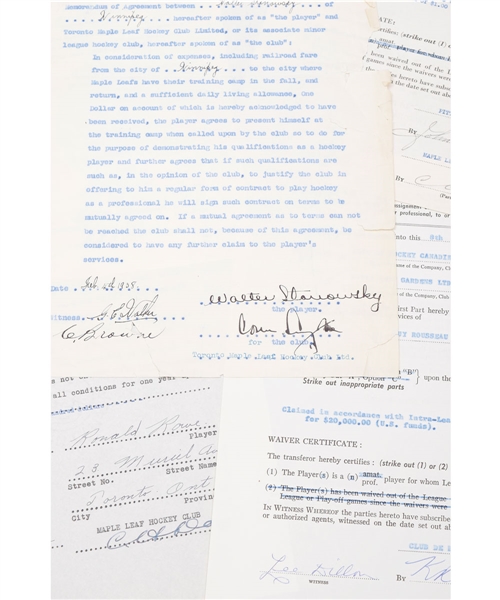 Memorandum of Agreement between
of
Winnipeg hereafter spoken of as "the player" and
Toronto Maple Leaf Hockey Club Limited, or its associate minor
league hockey club, hereafter spoken of as "the club":
In consideration of expenses, including railroad fare
from the city of Winnipeg to the city where
Maple Leafs have their training camp in the fall, and
return, and a sufficient daily living allowance, One
Dollar on account of which is hereby acknowledged to have
been received, the player agrees to present himself at
the training camp when called upon by the club so to do for
the purpose of demonstrating his qualifications as a hockey
player and further agrees that if such qualifications are
such as, in the opinion of the club, to justify the club in
offering to him a regular form of contract to play hockey
as a professional he will sign such contract on terms to be
mutually agreed on. If a mutual agreement as to terms can not
be reached the club shall not, because of this agreement, be
considered to have any further claim to the player's
services.
Date Feb. 1938
Witness
Walter Stanowsky
the player
C Browne
for the club
Toronto Maple Leaf Hockey Club Ltd.
all conditions for one year
Ronald Rowe
Player
23 Muriel Av
Street No. Street Name
Toronto Ont
City Provin
MAPLE LEAF HOCKEY CLUB
ATE:
certifies (strike out (1) or
By
MAPLE LE
By
professional, to or
into this 8th
OCKEY CANADIE
ame of the Company, Club
GARDENS LTD
of the Company, Club
irst Part hereby
vices of
ROUSSEAU
"B"} upon the
Strike out inappropriate parts
Claimed in accordance with Intra-Lea
for $20,000.00 (U.S. funds).
WAIVER CERTIFICATE:
The transferor hereby certifies: (strike out (1) or (2)
(1) The Player(s) is a (B) amat. prof. player for whom L
(2) The Player(s) has been waived out of the League
League or Play-off games since the waivers were
IN WITNESS WHEREOF the parties hereto have subscribe
or authorized agents, witnessed on the date set out ab
CLUB DE
Lee Dillon
WITNESS
By